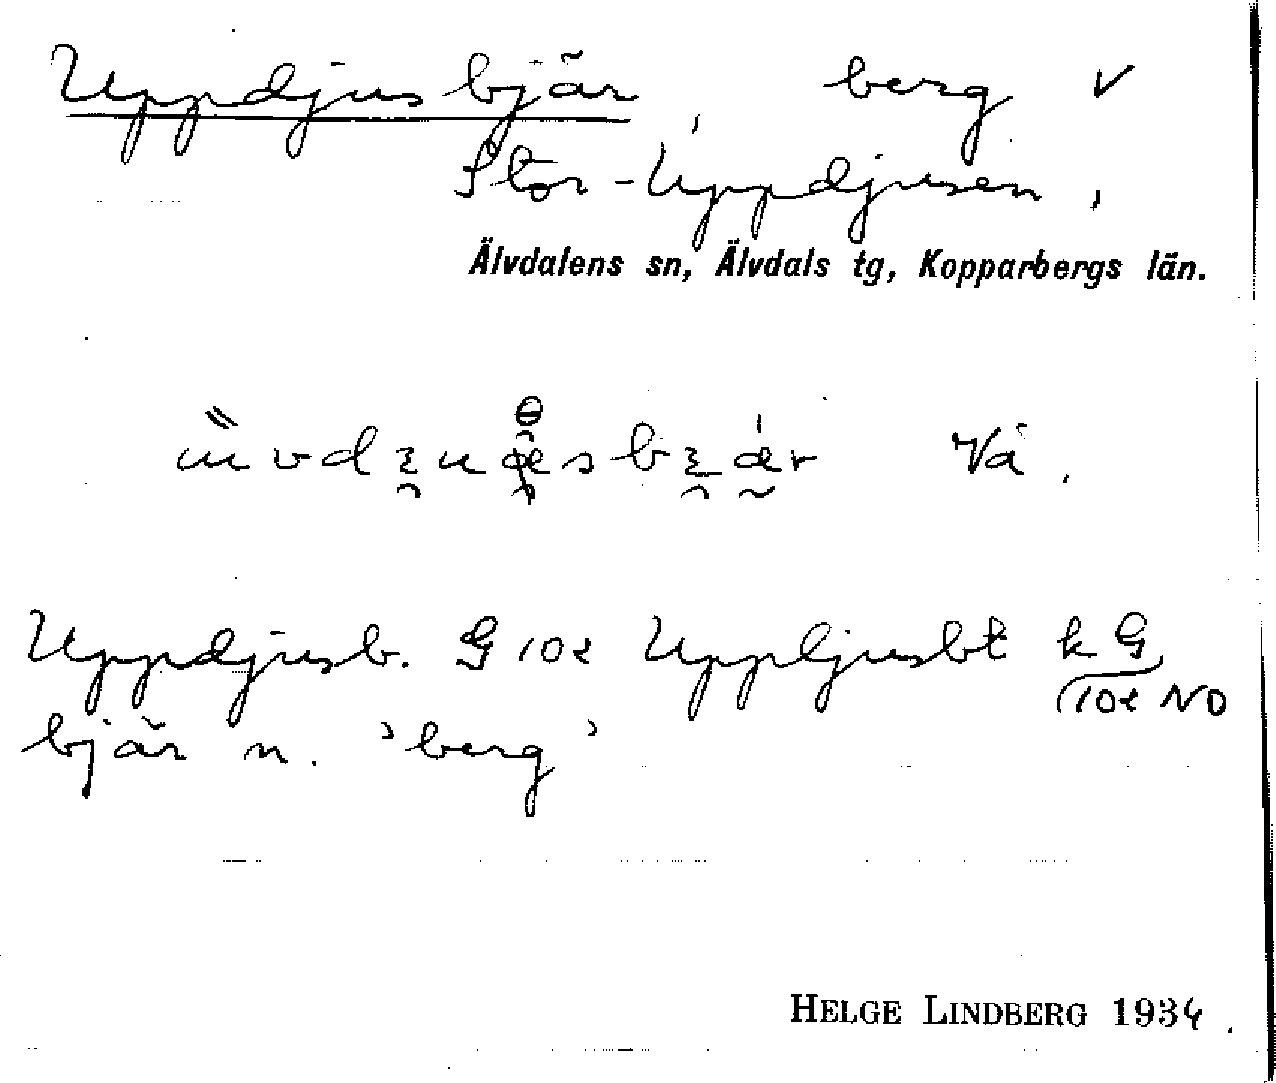 Uppdjusbjär, berg V
Stor-Uppdjusen,
Älvdalens sn, Älvdals tg, Kopparbergs län.
Vå.
Uppdjusb. G 102 Uppljusbt k G
102 NO
bjär n. 'berg'
HELGE LINDBERG 1934.